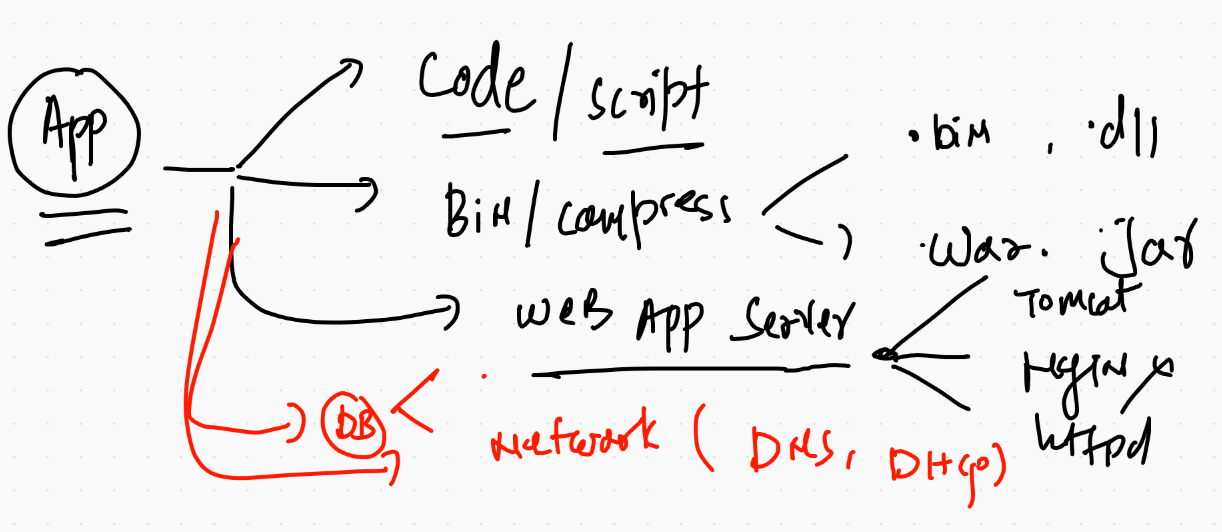 App
Code / script
Bin / compress
.bin , .dll
.war . jar
Web App Server
Tomcat
nginx
httpd
DB
Network ( DNS, DHCP)